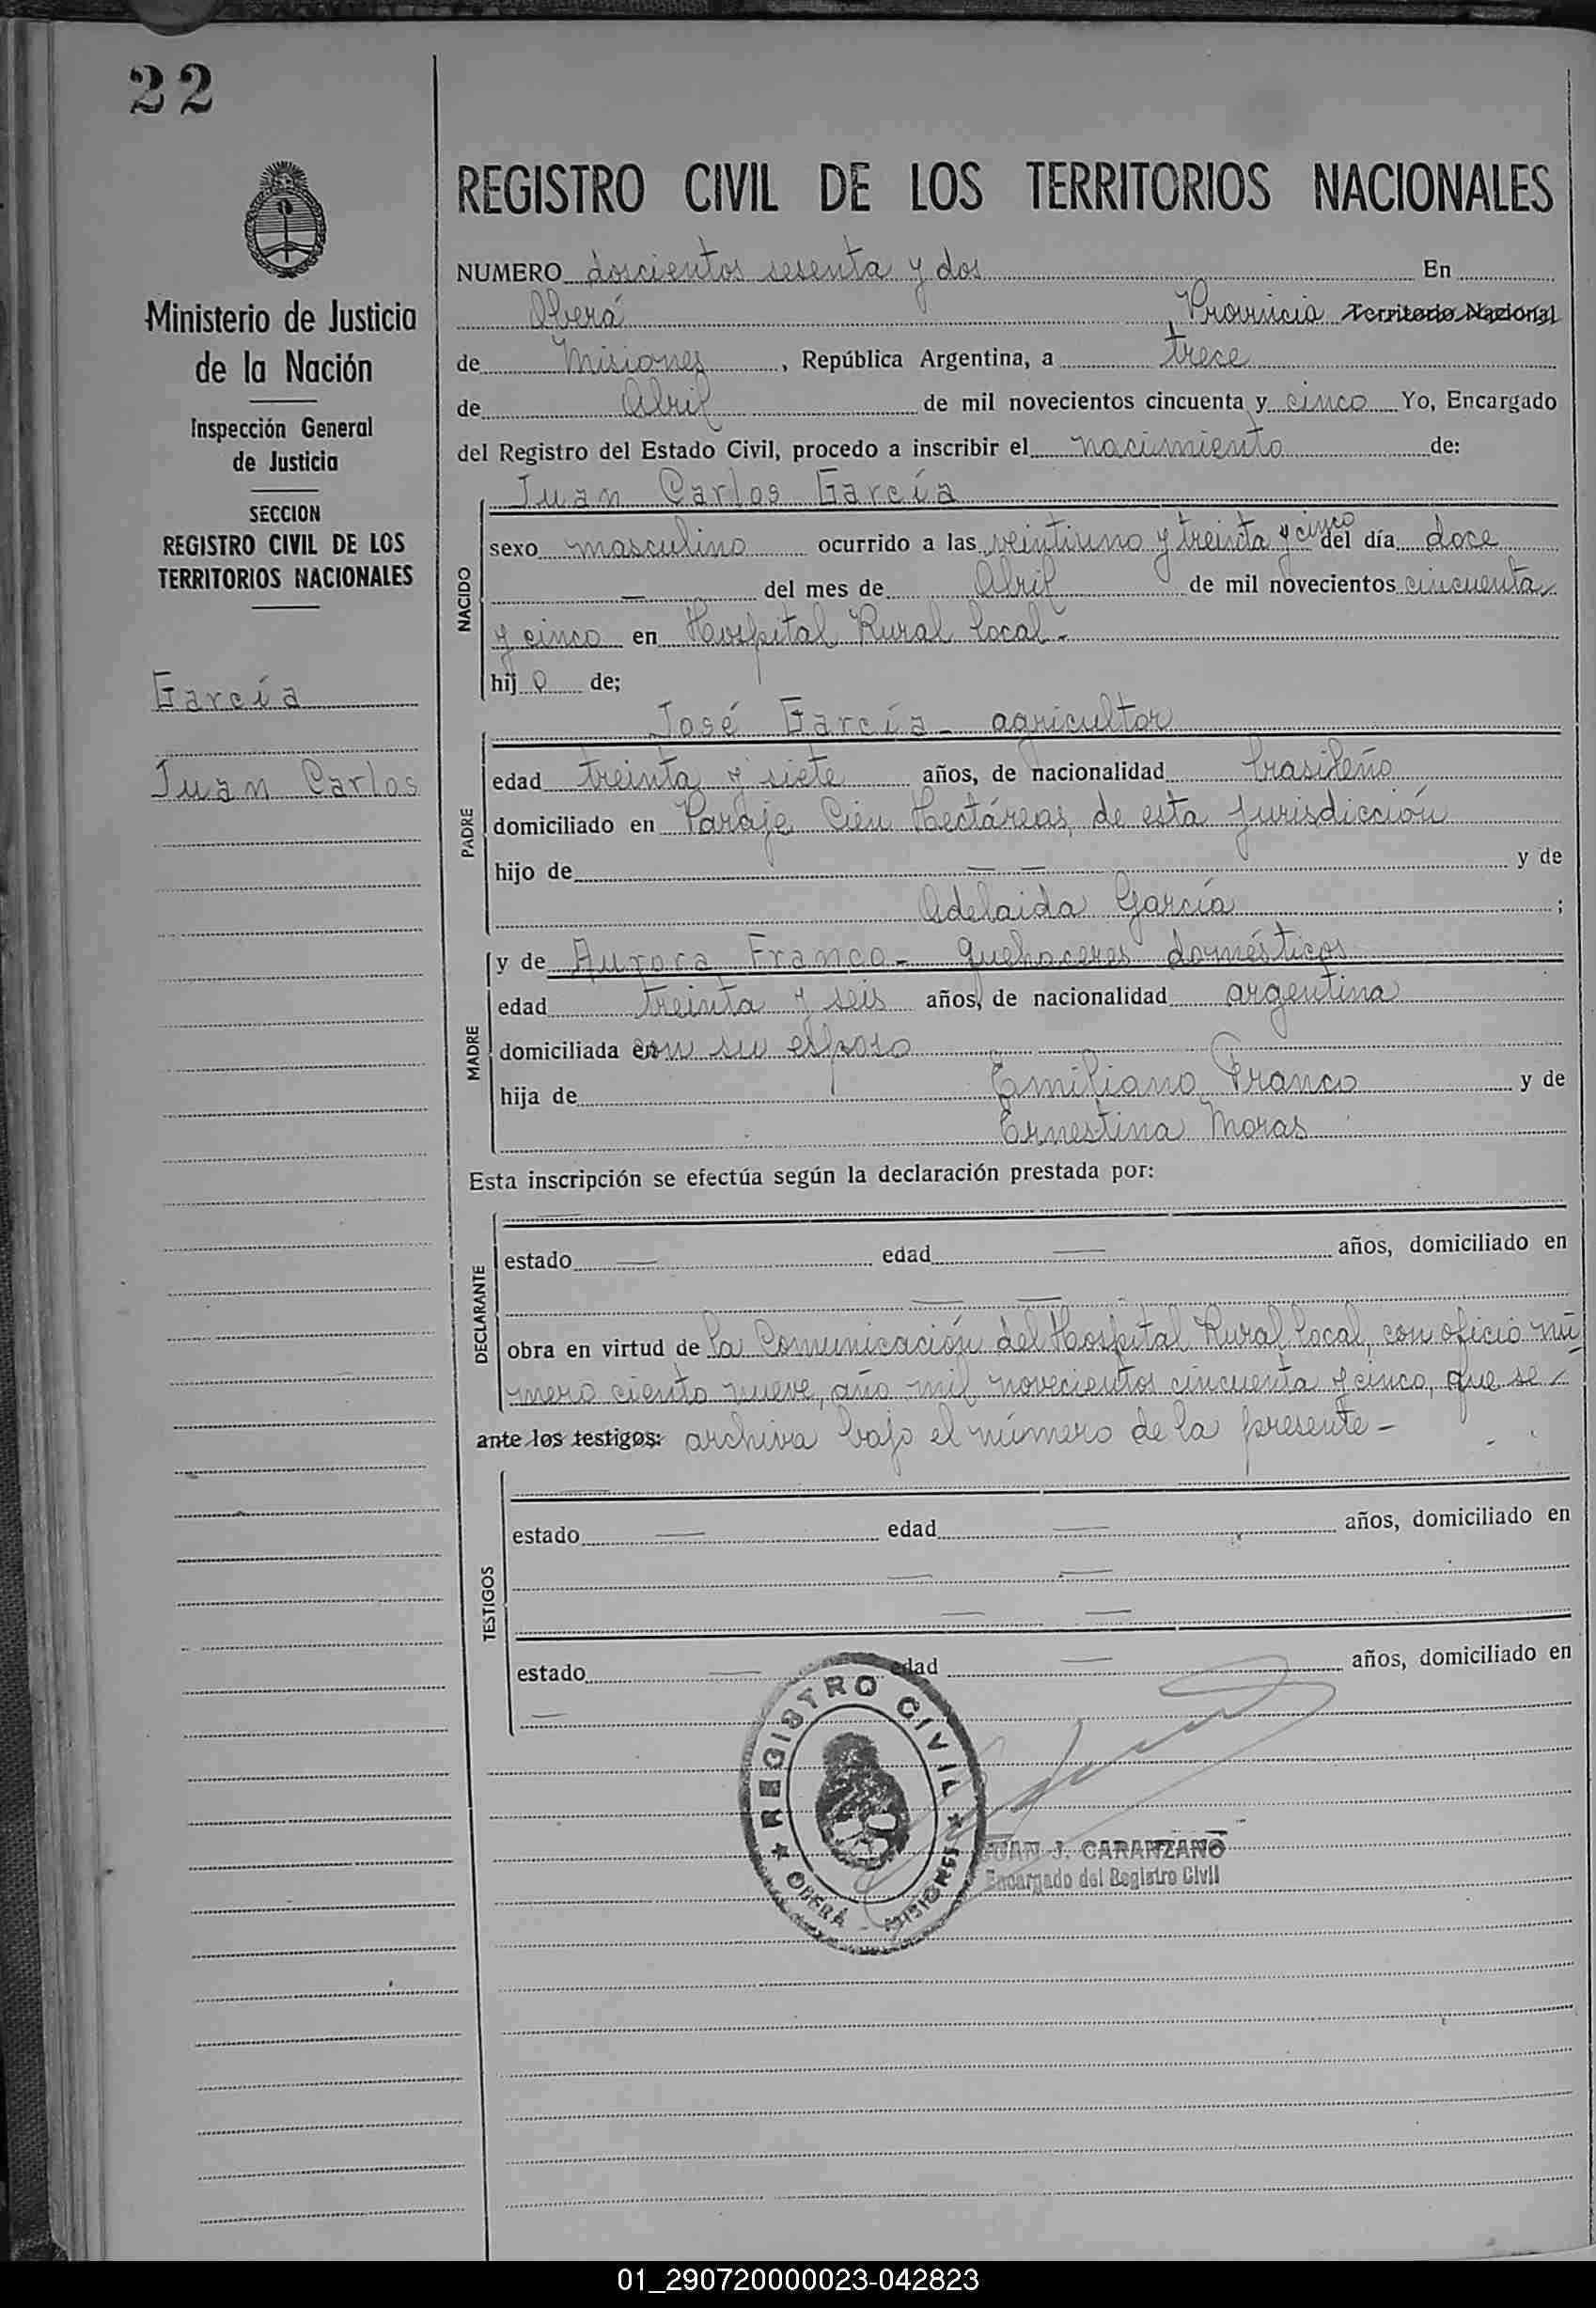 22
Ministerio de Justicia
de la Nación
Inspección General
de Justicia
SECCION
REGISTRO CIVIL DE LOS
TERRITORIOS NACIONALES
García
Juan Carlos
REGISTRO CIVIL DE LOS TERRITORIOS NACIONALES
NUMERO doscientos sesenta y dos En
Oberá Provincia Territorio Nacional
de Misiones, República Argentina, a trece
de Abril de mil novecientos cincuenta y cinco Yo, Encargado
del Registro del Estado Civil, procedo a inscribir el nacimiento de:
Juan Carlos García
NACIDO
sexo masculino ocurrido a las veintiuno y treinta y cinco del día doce
— del mes de Abril de mil novecientos cincuenta
y cinco en Hospital Rural local-
hij o de;
José García - agricultor
PADRE
edad treinta y siete años, de nacionalidad brasileño
domiciliado en Paraje Cien Hectáreas, de esta jurisdicción
hijo de — — y de
Adelaida García ;
y de Aurora Franco - quehaceres domésticos
MADRE
edad treinta y seis años, de nacionalidad argentina
domiciliada en con su esposo
hija de Emiliano Franco y de
Ernestina Moras
Esta inscripción se efectúa según la declaración prestada por:
DECLARANTE
estado — edad — años, domiciliado en
— —
obra en virtud de la Comunicación del Hospital Rural local, con oficio nú
mero ciento nueve, año mil novecientos cincuenta y cinco, que se -
ante los testigos: archiva bajo el número de la presente -
TESTIGOS
estado — edad — años, domiciliado en
— —
— —
estado — edad — años, domiciliado en
—
REGISTRO CIVIL
OBERÁ - MISIONES
JUAN J. CARANZANO
Encargado del Registro Civil
01_290720000023-042823